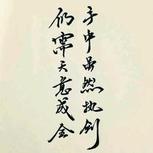 手中虽然执剑
仍需天意成全